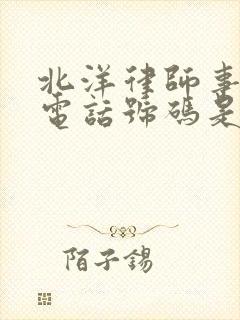 北洋律師事
電話號碼是
陌子錫